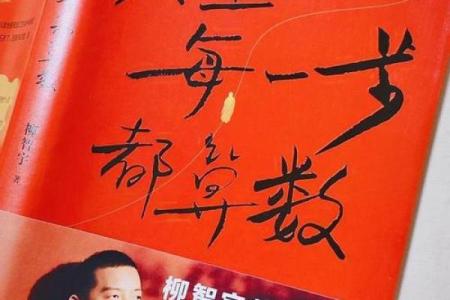 每一步
都算数
柳智宇 著
柳智宇